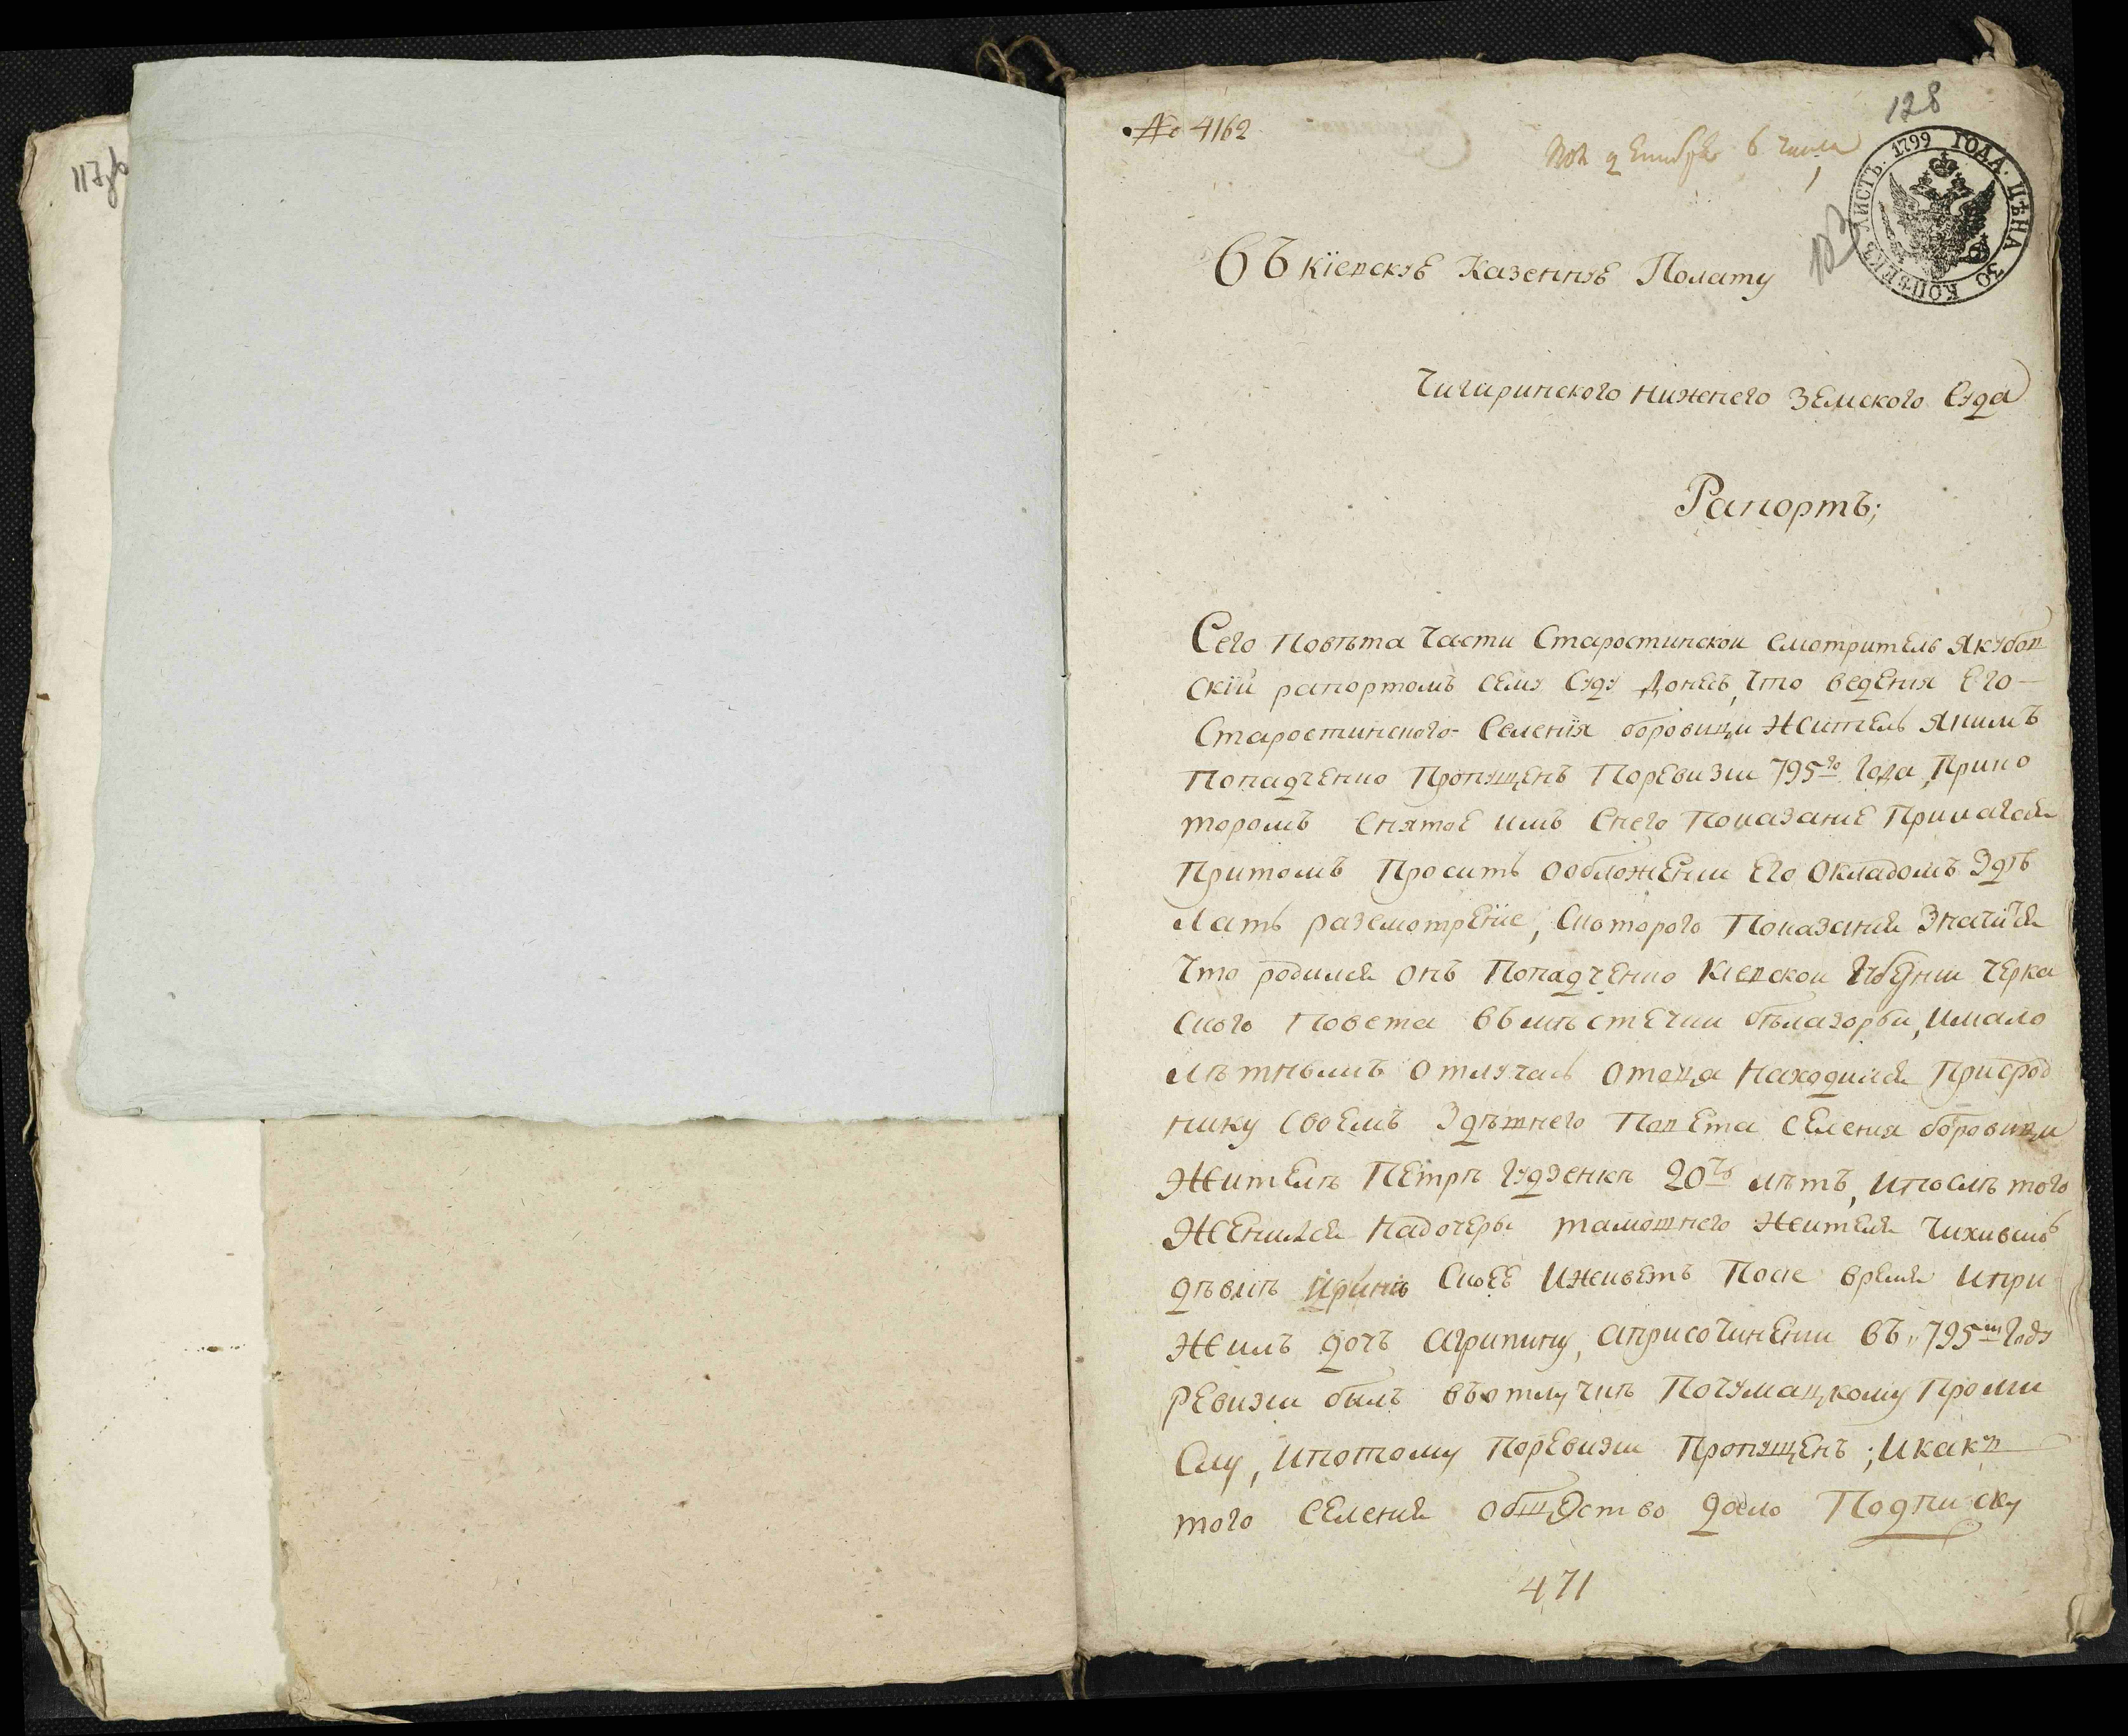 117
128
№ 4162
6 числа
ЛИСТЪ. 1799 ГОДА. ЦѢНА 30 КОПѢЕКЪ
Въ Кіевскую Казенную Полату
Чигиринского Нижнего Земского Суда
Рапортъ;
Сего Повѣта Части Старостинской смотритель Якубов
скій рапортомъ сему Суду Донесъ, что ведения Его
Старостинского Селенїя боровици Житель Якимъ
Попадченко Пропущенъ Поревизии 795го Года, Прико
торомъ Снятое имъ Снего Показание Прилагая
Притомъ Проситъ ообложении Его Окладомъ Здѣ
лать разсмотрение, Скоторого Показания Значитця
Что родился онъ Попадченко Киевской Губернии Черка
ского Повета Въ мѣстечки бѣлазорьи, ималo
лѣтнымъ отлучась отоца Находился Присрод
нику Своемъ Здѣшнего Повета Селения боровици
Жителѣ Петрѣ Гудзенкѣ 20ть лѣтъ, ипослѣ того
Женился Надочеры тамошнего Жителя
дѣвкѣ Иринѣ Скоеё Иживетъ Посие время Ипри
жилъ дочъ Агрипину, априсочинении Въ 795м Году
Ревизии былъ въотлучкѣ Почумацкому Промы
слу, ипотому Поревизии Пропущенъ; Какъ
того Селения общество дало Подписку
471